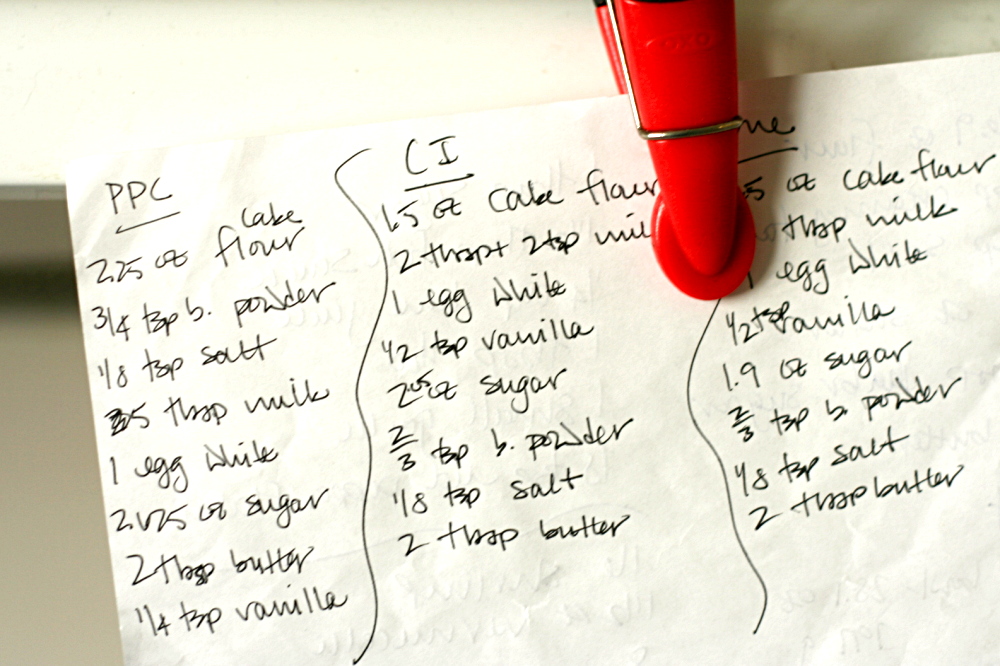 PPC
2.25 oz cake flour
3/4 tsp b. powder
1/8 tsp salt
5 tbsp milk
1 egg white
2.1/25 oz sugar
2 tbsp butter
1/4 tsp vanilla
CI
1.5 oz cake flour
2 tbsp + 2 tsp
1 egg white
1/2 tsp vanilla
sugar
2/3 tsp b. powder
1/8 tsp salt
2 tbsp butter
5 oz cake flour
tbsp milk
1 egg white
1/2 tsp vanilla
1.9 oz sugar
2/3 tsp b. powder
1/8 tsp salt
2 tbsp butter
OXO